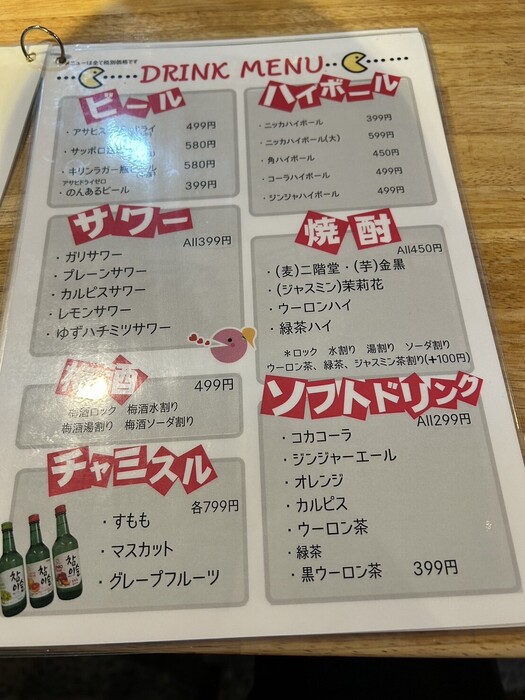 メニューは全て税別価格です
DRINK MENU
ビール
・アサヒス ドライ 499円
・サッポロ 580円
・キリンラガー 580円
アサヒドライゼロ
・のんあるビール 399円
ハイボール
・ニッカハイボール 399円
・ニッカハイボール(大) 599円
・角ハイボール 450円
・コーラハイボール 499円
・ジンジャハイボール 499円
サワー
All399円
・ガリサワー
・プレーンサワー
・カルピスサワー
・レモンサワー
・ゆずハチミツサワー
焼酎
All450円
・(麦)二階堂・(芋)金黒
・(ジャスミン)茉莉花
・ウーロンハイ
・緑茶ハイ
＊ロック 水割り 湯割り ソーダ割り
ウーロン茶、緑茶、ジャスミン茶割り(+100円)
梅酒
499円
梅酒ロック 梅酒水割り
梅酒湯割り 梅酒ソーダ割り
チャミスル
各799円
・すもも
・マスカット
・グレープフルーツ
참이슬
참이슬
참이슬
ソフトドリンク
All299円
・コカコーラ
・ジンジャーエール
・オレンジ
・カルピス
・ウーロン茶
・緑茶
・黒ウーロン茶 399円